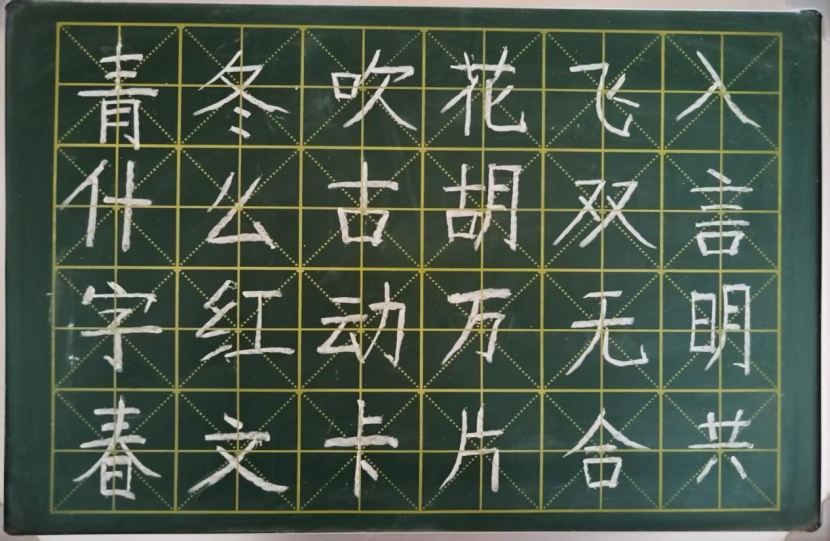 青冬吹花飞入
什么古胡双言
字红动万无明
春文卡片合共